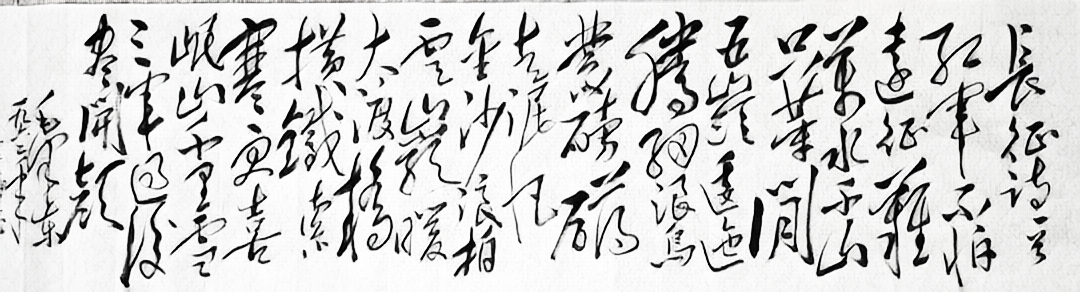 長征诗一首
红軍不怕
遠征難
萬水千山
只等閒
五嶺逶迤
腾細浪烏
蒙磅礴
走泥丸
金沙浪拍
雲崖暖
大渡橋
横鐵索
寒更喜
岷山千里雪
三軍過後
盡開颜
毛澤東